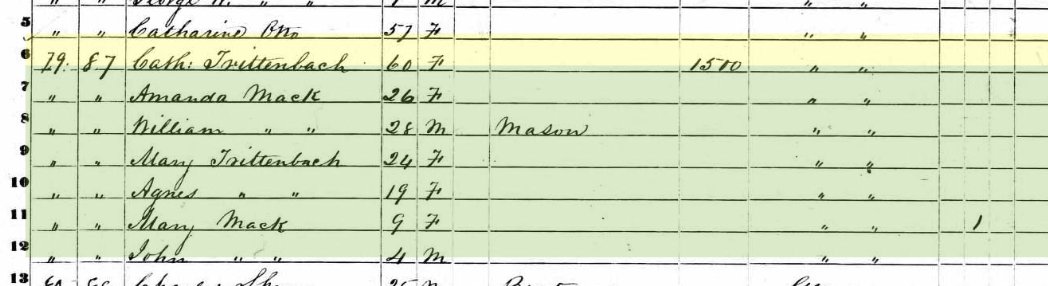 George " " M " "
5 " " Catharine Otto 57 F " "
6 79 87 Cath: Trittenbach 60 F 1500 " "
7 " " Amanda Mack 26 F " "
8 " " William " " 28 M Mason " "
9 " " Mary Trittenbach 24 F " "
10 " " Agnes " " 19 F " "
11 " " Mary Mack 9 F " " 1
12 " " John " " 4 M " "
13